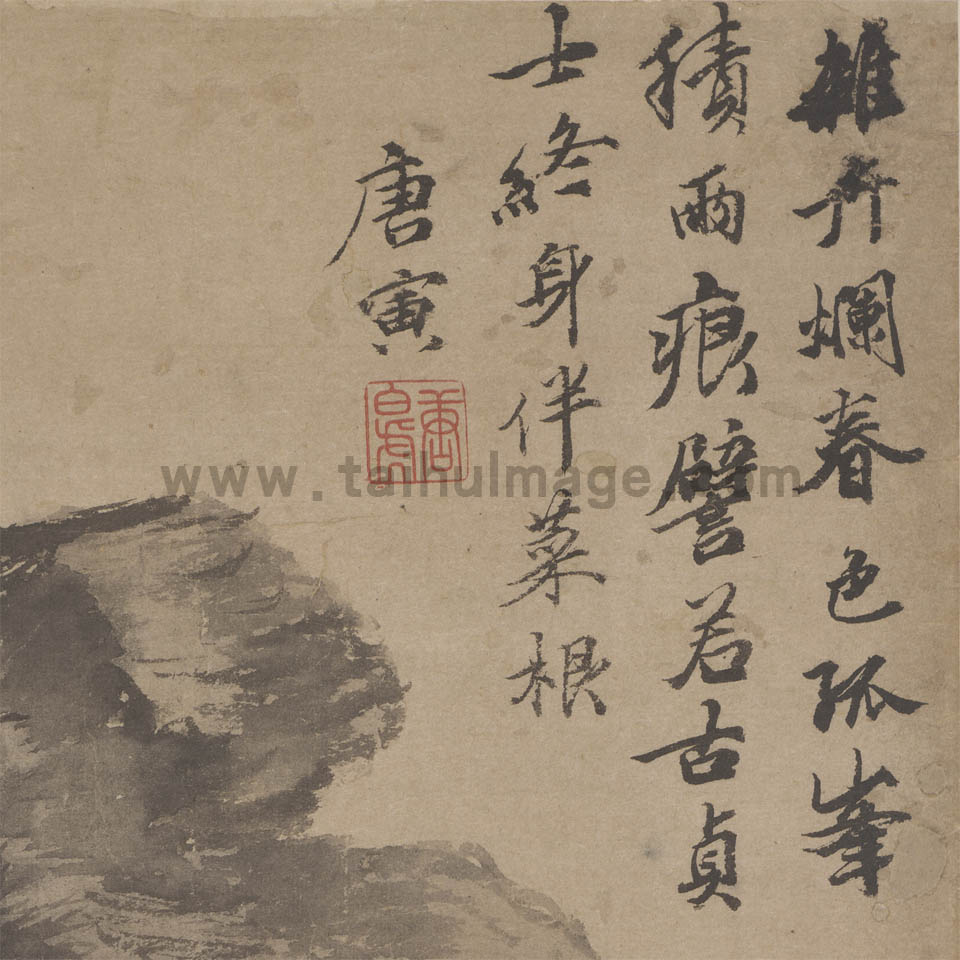 雜卉爛春色孤峯
積雨痕譬若古貞
士終身伴菜根
唐寅
www.taihuImage.com